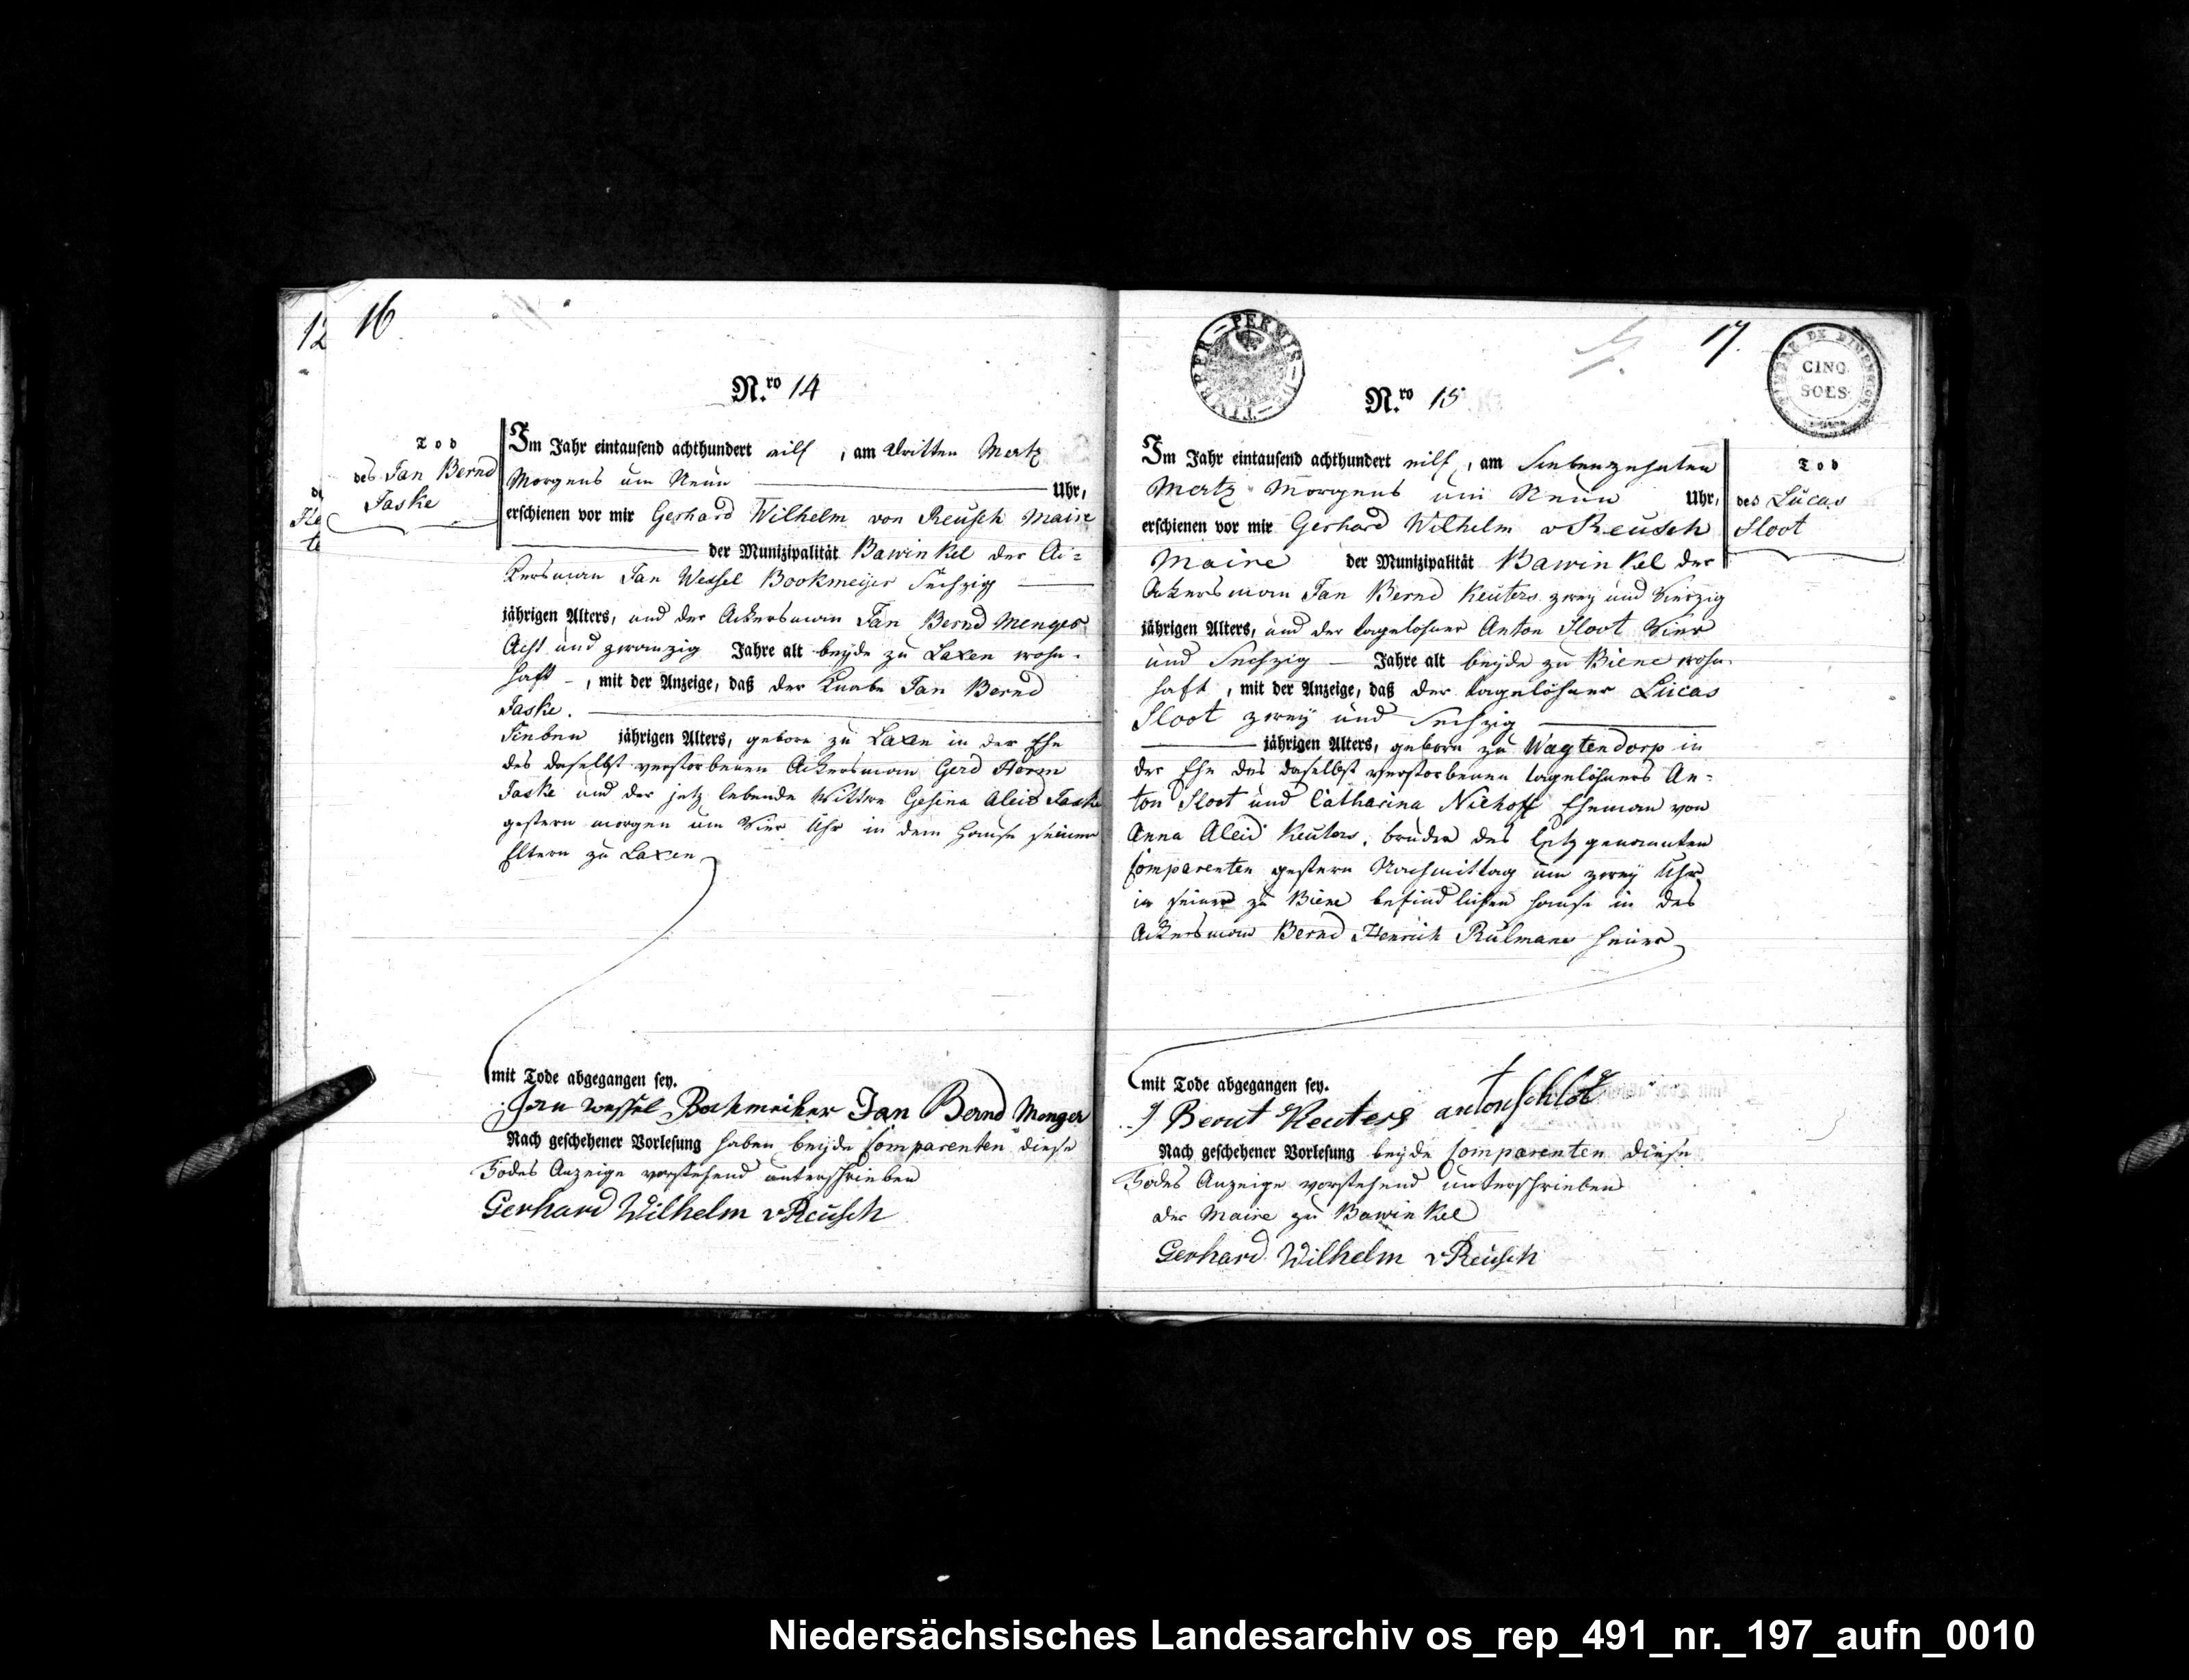 12 16
N.ro 14
Tod
des Jan Bernd
Taske
Im Jahr eintausend achthundert eilf, am Dritten Mertz
Morgens um Neun Uhr,
erschienen vor mir Gerhard Wilhelm von Reusch Maire
der Munizipalität Bawinkel der Ac=
kersman Jan Wessel Bookmeijer Sechzig
jährigen Alters, und der Ackersman Jan Bernd Menges
Acht und zwanzig Jahre alt beyde zu Laxen wohn-
haft, mit der Anzeige, daß der Knabe Jan Bernd
Taske.
Sieben jährigen Alters, gebore zu Laxen in der Ehe
des daselbst verstorbenen Ackersman Gerd Herm
Taske und der jetz lebende Wittwe Gesina Aleid Taske
gestern morgen um Vier Uhr in dem Hause seiner
Eltern zu Laxen
mit Tode abgegangen sey.
Jan Wessel Bockmeiher Jan Bernd Menger
Nach geschehener Vorlesung haben beyde Comparenten diese
Todes Anzeige vorstehend unterschrieben
Gerhard Wilhelm vReusch
17.
PERMIS
TIMBRE DE DIMENSION
CINQ
SOLS
N.ro 15
Tod
des Lucas
Sloot
Im Jahr eintausend achthundert eilf, am Siebenzehnten
Mertz Morgens um Neun Uhr,
erschienen vor mir Gerhard Wilhelm vReusch
Maire der Munizipalität Bawinkel der
Ackersman Jan Bernd Keuters zwey und Vierzig
jährigen Alters, und der tagelöhner Anton Sloot Vier
und Sechzig Jahre alt beyde zu Biene wohn-
haft, mit der Anzeige, daß der tagelöhner Lucas
Sloot zwey und Sechzig
jährigen Alters, geborn zu Wagtendorp in
der Ehe des daselbst verstorbenen tagelöhners An-
ton Sloot und Catharina Niehoff Ehemann von
Anna Aleid Keuters, bruder des letz genannten
Comparenten gestern Nachmittag um zwey Uhr
in seiner zu Biene befindlichen Hause in des
Ackersman Bernd Henrich Rulmans heuer
mit Tode abgegangen sey.
J Bernt Keuters anton schlot
Nach geschehener Vorlesung beyde Comparenten diese
Todes Anzeige vorstehend unterschrieben
der Maire zu Bawinkel
Gerhard Wilhelm vReusch
Niedersächsisches Landesarchiv os_rep_491_nr._197_aufn_0010